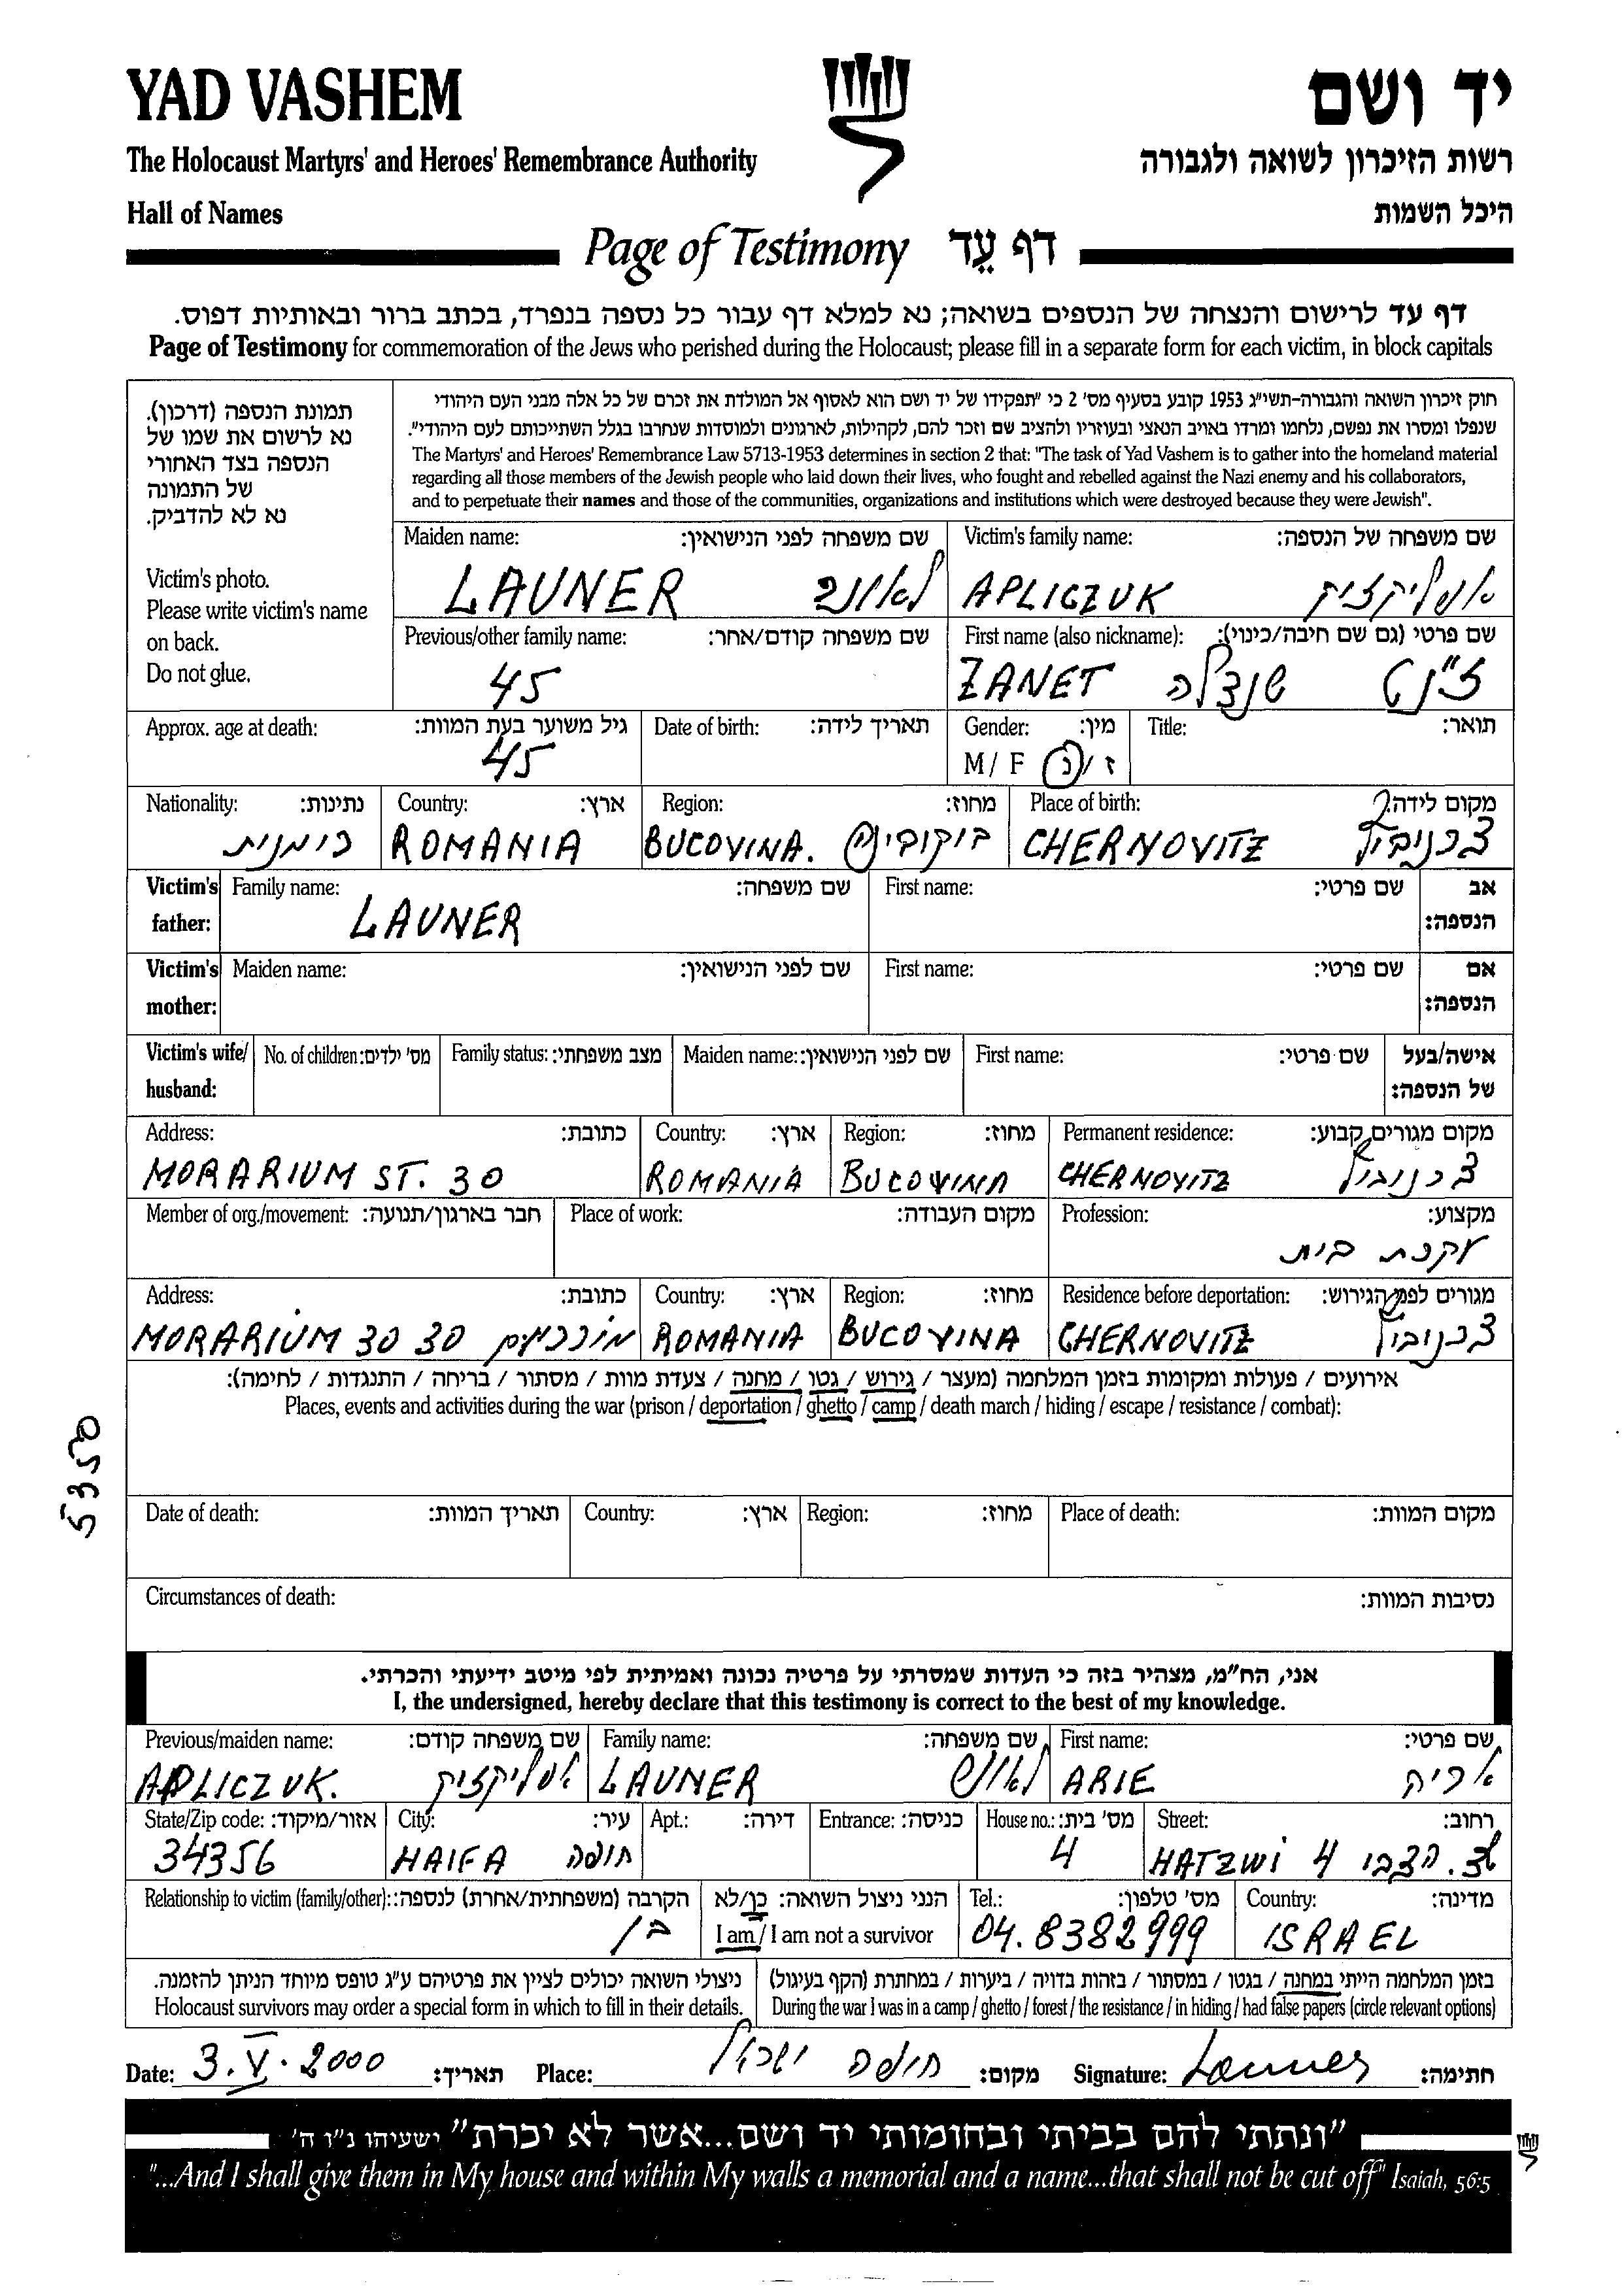 YAD VASHEM יד ושם
The Holocaust Martyrs' and Heroes' Remembrance Authority רשות הזיכרון לשואה ולגבורה
Hall of Names היכל השמות
Page of Testimony דף עֵד
דף עד לרישום והנצחה של הנספים בשואה; נא למלא דף עבור כל נספה בנפרד, בכתב ברור ובאותיות דפוס.
Page of Testimony for commemoration of the Jews who perished during the Holocaust; please fill in a separate form for each victim, in block capitals
תמונת הנספה (דרכון).
נא לרשום את שמו של
הנספה בצד האחורי
של התמונה
נא לא להדביק.
Victim's photo.
Please write victim's name
on back.
Do not glue.
חוק זיכרון השואה והגבורה-תשי"ג 1953 קובע בסעיף מס' 2 כי "תפקידו של יד ושם הוא לאסוף אל המולדת את זכרם של כל אלה מבני העם היהודי
שנפלו ומסרו את נפשם, נלחמו ומרדו באויב הנאצי ובעוזריו ולהציב שם וזכר להם, לקהילות, לארגונים ולמוסדות שנחרבו בגלל השתייכותם לעם היהודי".
The Martyrs' and Heroes' Remembrance Law 5713-1953 determines in section 2 that: "The task of Yad Vashem is to gather into the homeland material
regarding all those members of the Jewish people who laid down their lives, who fought and rebelled against the Nazi enemy and his collaborators,
and to perpetuate their names and those of the communities, organizations and institutions which were destroyed because they were Jewish".
Maiden name: שם משפחה לפני הנישואין: Victim's family name: שם משפחה של הנספה:
LAUNER לאונר APLICZUK אפליקזוק
Previous/other family name: שם משפחה קודם/אחר: First name (also nickname): שם פרטי (גם שם חיבה/כינוי):
45 ZANET שנדלה ז'נט
Approx. age at death: גיל משוער בעת המוות: Date of birth: תאריך לידה: Gender: מין: Title: תואר:
45 M / F ז / נ
Nationality: נתינות: Country: ארץ: Region: מחוז: Place of birth: מקום לידה:
רומנית ROMANIA BUCOVINA. בוקובינה CHERNOVITZ צרנוביץ
Victim's father: Family name: שם משפחה: First name: שם פרטי: אב הנספה:
LAUNER
Victim's mother: Maiden name: שם לפני הנישואין: First name: שם פרטי: אם הנספה:
Victim's wife/ husband: No. of children: מס' ילדים: Family status: מצב משפחתי: Maiden name: שם לפני הנישואין: First name: שם פרטי: אישה/בעל של הנספה:
Address: כתובת: Country: ארץ: Region: מחוז: Permanent residence: מקום מגורים קבוע:
MORARIUM ST. 30 ROMANIA BUCOVINA CHERNOVITZ צרנוביץ
Member of org./movement: חבר בארגון/תנועה: Place of work: מקום העבודה: Profession: מקצוע:
עקרת בית
Address: כתובת: Country: ארץ: Region: מחוז: Residence before deportation: מגורים לפני הגירוש:
MORARIUM 30 30 ROMANIA BUCOVINA CHERNOVITZ צרנוביץ
אירועים / פעולות ומקומות בזמן המלחמה (מעצר / גירוש / גטו / מחנה / צעדת מוות / מסתור / בריחה / התנגדות / לחימה):
Places, events and activities during the war (prison / deportation / ghetto / camp / death march / hiding / escape / resistance / combat):
5350
Date of death: תאריך המוות: Country: ארץ: Region: מחוז: Place of death: מקום המוות:
Circumstances of death: נסיבות המוות:
אני, הח"מ, מצהיר בזה כי העדות שמסרתי על פרטיה נכונה ואמיתית לפי מיטב ידיעתי והכרתי.
I, the undersigned, hereby declare that this testimony is correct to the best of my knowledge.
Previous/maiden name: שם משפחה קודם: Family name: שם משפחה: First name: שם פרטי:
APLICZUK. אפליקזוק LAUNER ARIE אריה
State/Zip code: אזור/מיקוד: City: עיר: Apt.: דירה: Entrance: כניסה: House no.: מס' בית: Street: רחוב:
34356 HAIFA חיפה 4 HATZWI 4 הצבי
Relationship to victim (family/other): הקרבה (משפחתית/אחרת) לנספה: הנני ניצול השואה: כן/לא Tel.: מס' טלפון: Country: מדינה:
בן I am / I am not a survivor 04.8382999 ISRAEL
ניצולי השואה יכולים לציין את פרטיהם ע"ג טופס מיוחד הניתן להזמנה. בזמן המלחמה הייתי במחנה / בגטו / במסתור / בזהות בדויה / ביערות / במחתרת (הקף בעיגול)
Holocaust survivors may order a special form in which to fill in their details. During the war I was in a camp / ghetto / forest / the resistance / in hiding / had false papers (circle relevant options)
Date: 3.V.2000 תאריך: Place: חיפה ישראל מקום: Signature: Launer חתימה:
"ונתתי להם בביתי ובחומותי יד ושם...אשר לא יכרת" ישעיהו נ"ו ה'
"...And I shall give them in My house and within My walls a memorial and a name...that shall not be cut off" Isaiah, 56:5